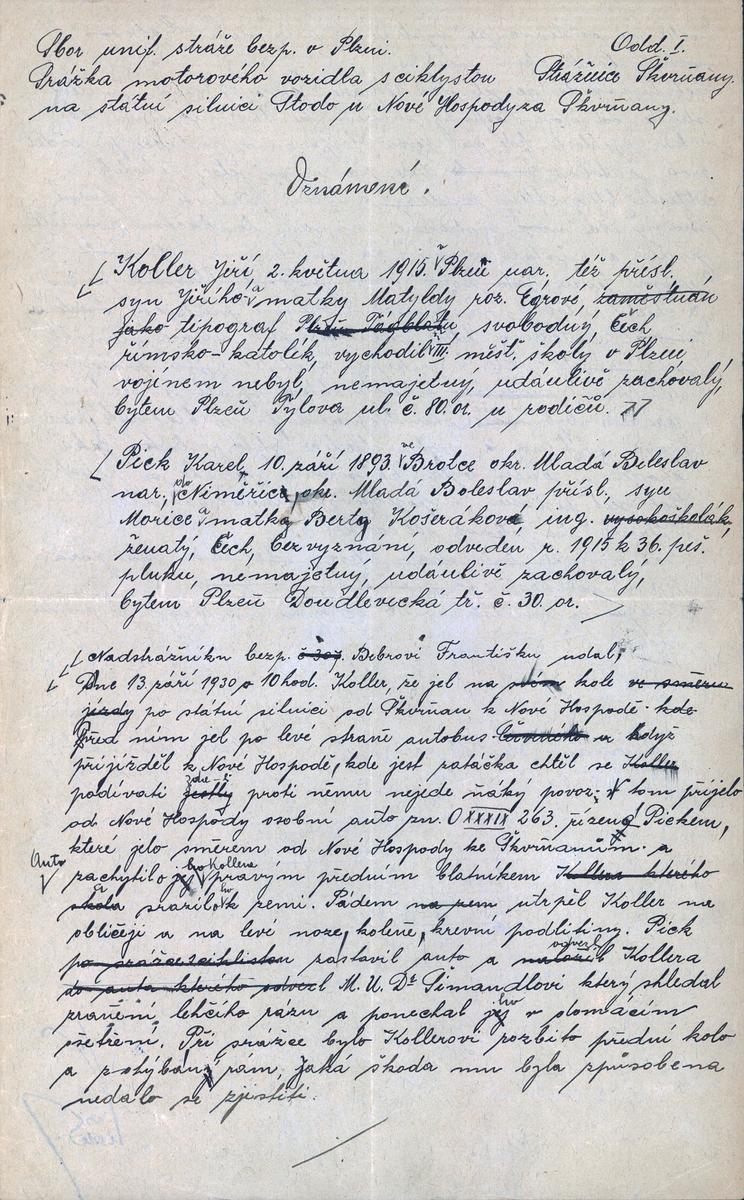 Sbor unif. stráže bezp. v Plzni. Odd. I.
Srážka motorového vozidla s ciklystou Strážnice Škvrňany.
na státní silnici Stodo u Nové Hospody za Škvrňany.
Oznámení.
Koller Jiří, 2. května 1915. v Plzni nar. též přísl.
syn Jiřího a matky Matyldy roz. Egrové, zaměstnán
jako tipograf Plzeň Tagblattu, svobodný, Čech
římsko-katolík, vychodil III. měšť. školy v Plzni
vojínem nebyl, nemajetný, udáulivě zachovalý,
bytem Plzeň Tylova ul. č. 80. or. u rodičů.
Pick Karel, 10. září 1893. ve Brotce okr. Mladá Beleslav
nar. do Niměřice, okr. Mladá Boleslav přísl., syn
Morice a matky Berty Košerákové, ing. vysokoškolák,
ženatý, Čech, bez vyznání, odveden r. 1915 k 36. peš.
pluku, nemajetný, udáulivě zachovalý,
bytem Plzeň Doudlevická tř. č. 30. or.
Nadstrážníku bezp. Bebrovi Františku udal,
Dne 13. září 1930 o 10 hod. Koller, že jel na svém kole ve směru
jízdy po státní silnici od Škvrňan k Nové Hospodě. kde
Před ním jel po levé straně autobus a když
přijížděl k Nové Hospodě, kde jest zatáčka chtěl se Koller
podívati jestly zda-li proti němu nejede ňáký povoz; V tom přijelo
od Nové Hospody osobní auto zn. O XXXIX 263. řízené Pickem,
které jelo směrem od Nové Hospody ke Škvrňanům. a
Auto zachytilo jej Kollera pravým předním blatníkem Kollera kterého
srazilo ho k zemi. Pádem na zem utrpěl Koller na
obličeji a na levé noze, koleně, krevní podlitiny. Pick
po srážce s ciklistou zastavil auto a naložil odvezl Kollera
do auta kterého odvezl M. U. Dr Šimandlovi který shledal
zranění lehčího razu a ponechal jej ho v domácím
ošetření. Při srážce bylo Kollerovi rozbito přední kolo
a zohýbán rám, jaká škoda mu byla způsobena
nedalo se zjistiti.